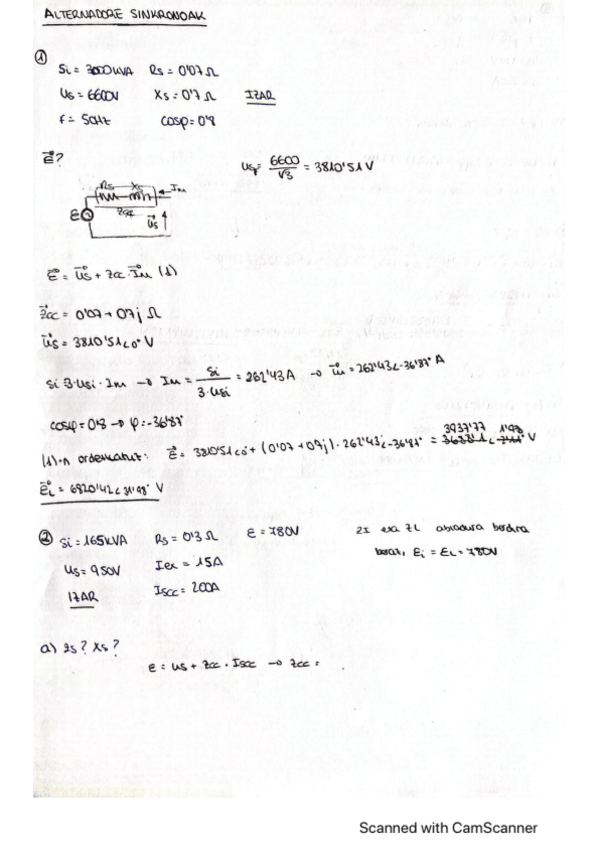 ALTERNADORE SINKRONOAK
①
Si = 3000kVA Rs = 0'07 Ω
Us = 6600V Xs = 0'7 Ω IZAR
f = 50Hz cosρ = 0'8
E? 6600/√3 = 3810'51 V
Rs Xs Im
E Us
E = Us + Zcc · Im (1)
Zcc = 0'07 + 0'7j Ω
Us = 3810'51∠0° V
Si 3·Usi·Im → Im = Si / 3·Usi = 262'43 A → Im = 262'43∠-36'87° A
cosφ = 0'8 → φ = -36'87
(1)-n ordezkatuz: E = 3810'51∠0° + (0'07 + 0'7j) · 262'43∠-36'87° = 3937'77 ∠ 1'98 V
EL = 6820'42∠31'98° V
② Si = 165kVA Rs = 0'3 Ω E = 780V ZI eta ZL
Us = 950V Iex = 15A Ei = EL = 780V
IZAR Iscc = 200A
a) Zs? Xs?
E = Us + Zcc · Iscc → Zcc =
Scanned with CamScanner